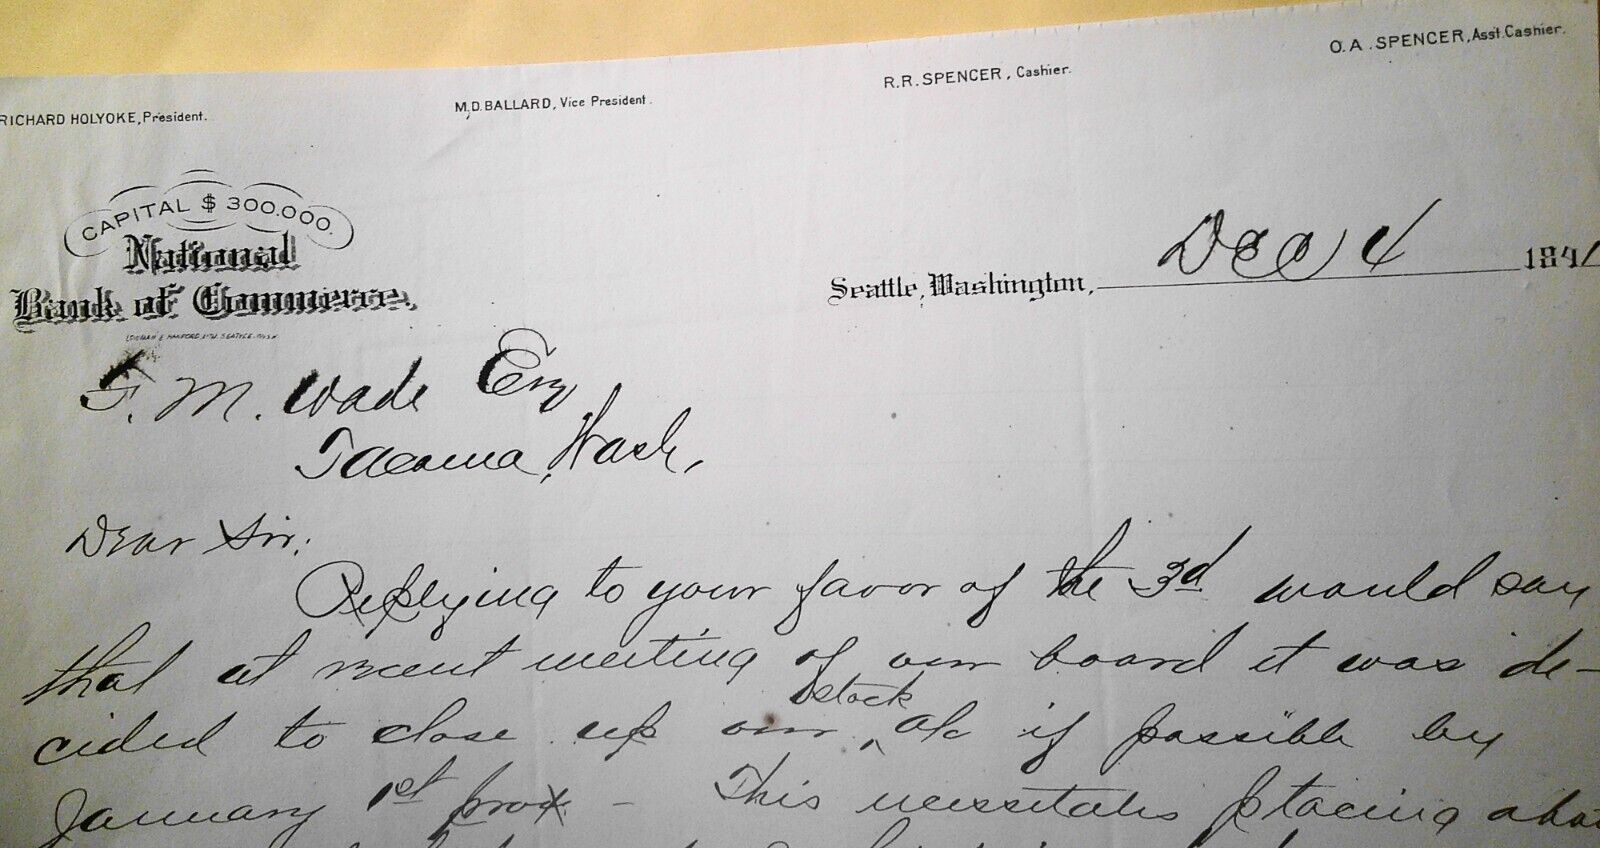 RICHARD HOLYOKE, President.
M.D. BALLARD, Vice President.
R.R. SPENCER, Cashier.
O.A. SPENCER, Asst. Cashier.
CAPITAL $ 300.000.
National
Bank of Commerce.
Seattle, Washington, Dec 4 1891
F. M. Wade Esq
Tacoma, Wash,
Dear Sir:
Replying to your favor of the 3d would say
that at recent meeting of our board it was de-
cided to close up our stock a/c if possible by
January 1st prox - This necessitates placing